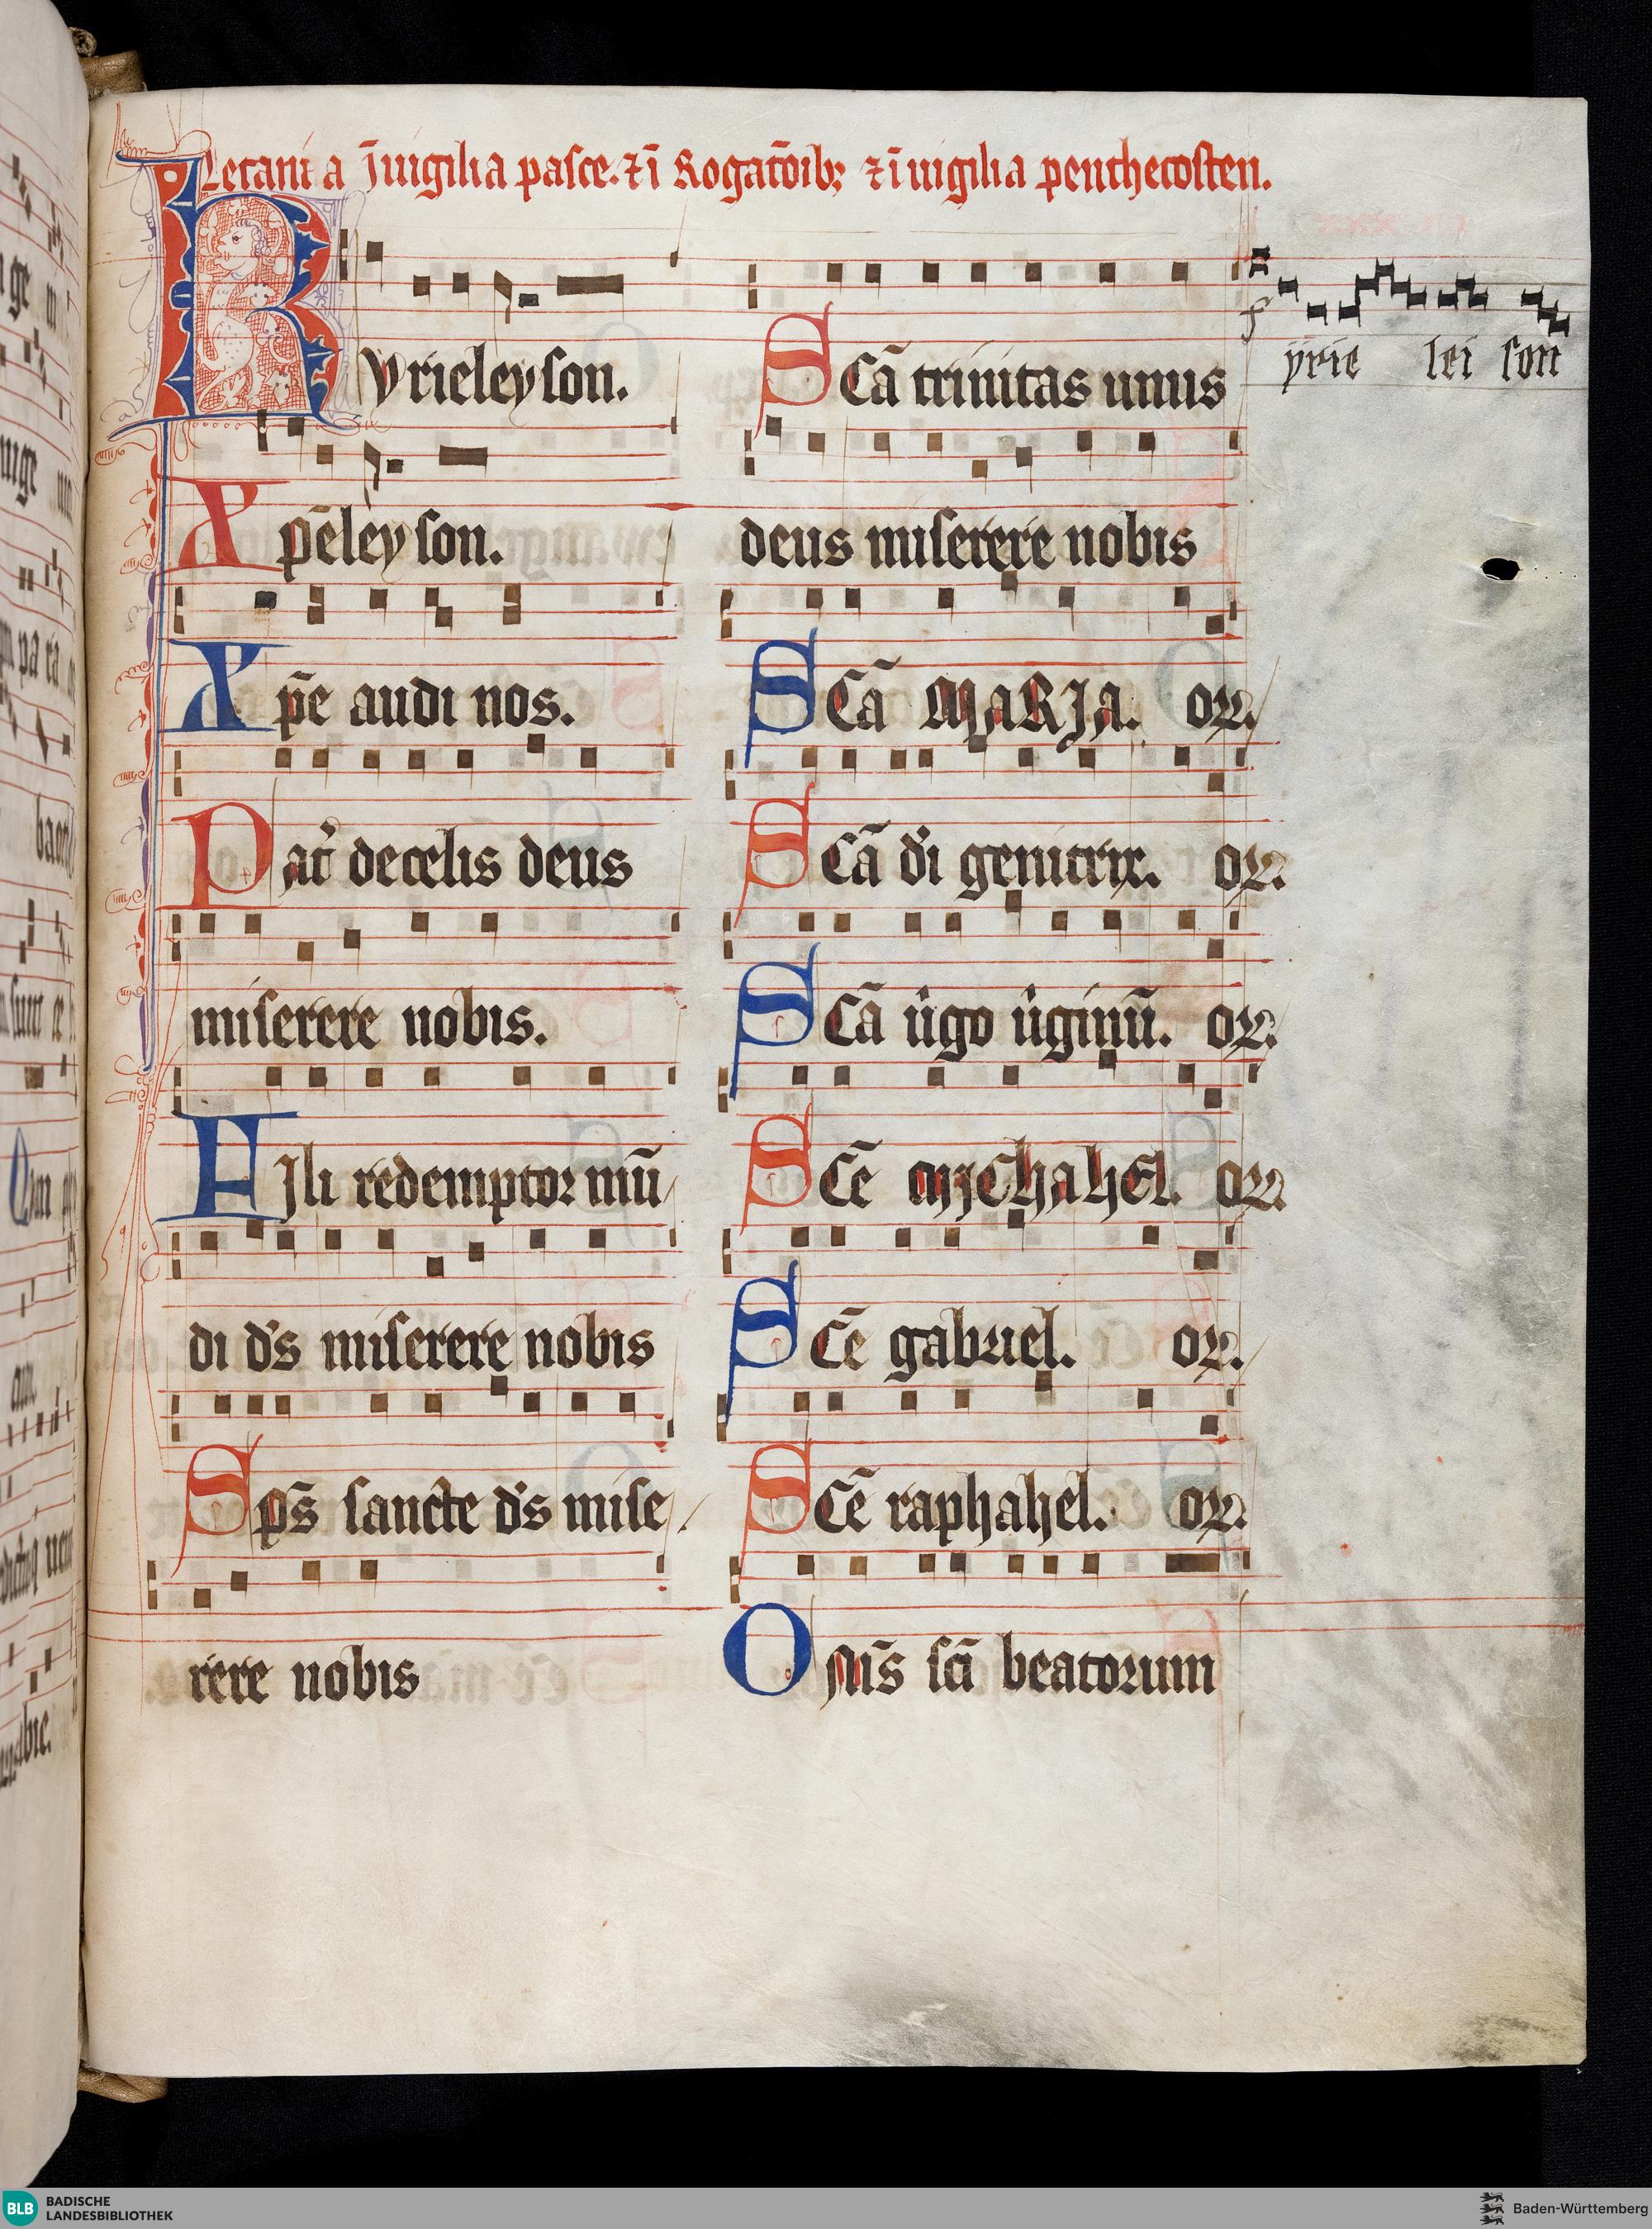 Letania Īuigilia pasce. ⁊ ī Rogatōib; ⁊ ī uigilia penthecosten.
Kyrieleyson.
Xp̄eleyson.
Xp̄e audi nos.
Pat̾ decelis deus
miserere nobis.
FIli redemptor mū
di d̾s miserere nobis
Sp̄s sancte d̾s mise
rere nobis
SCā trinitas unus
deus miserere nobis
SCā MARIA. or.
SCā di genitrix. or.
SCā uͥgo uͥginū. or.
SCē MIChahEl. or.
SCē gabriel. or.
SCē raphahel. or.
OMīs scī beatorum
yrie lei son
BLB BADISCHE
LANDESBIBLIOTHEK
Baden-Württemberg